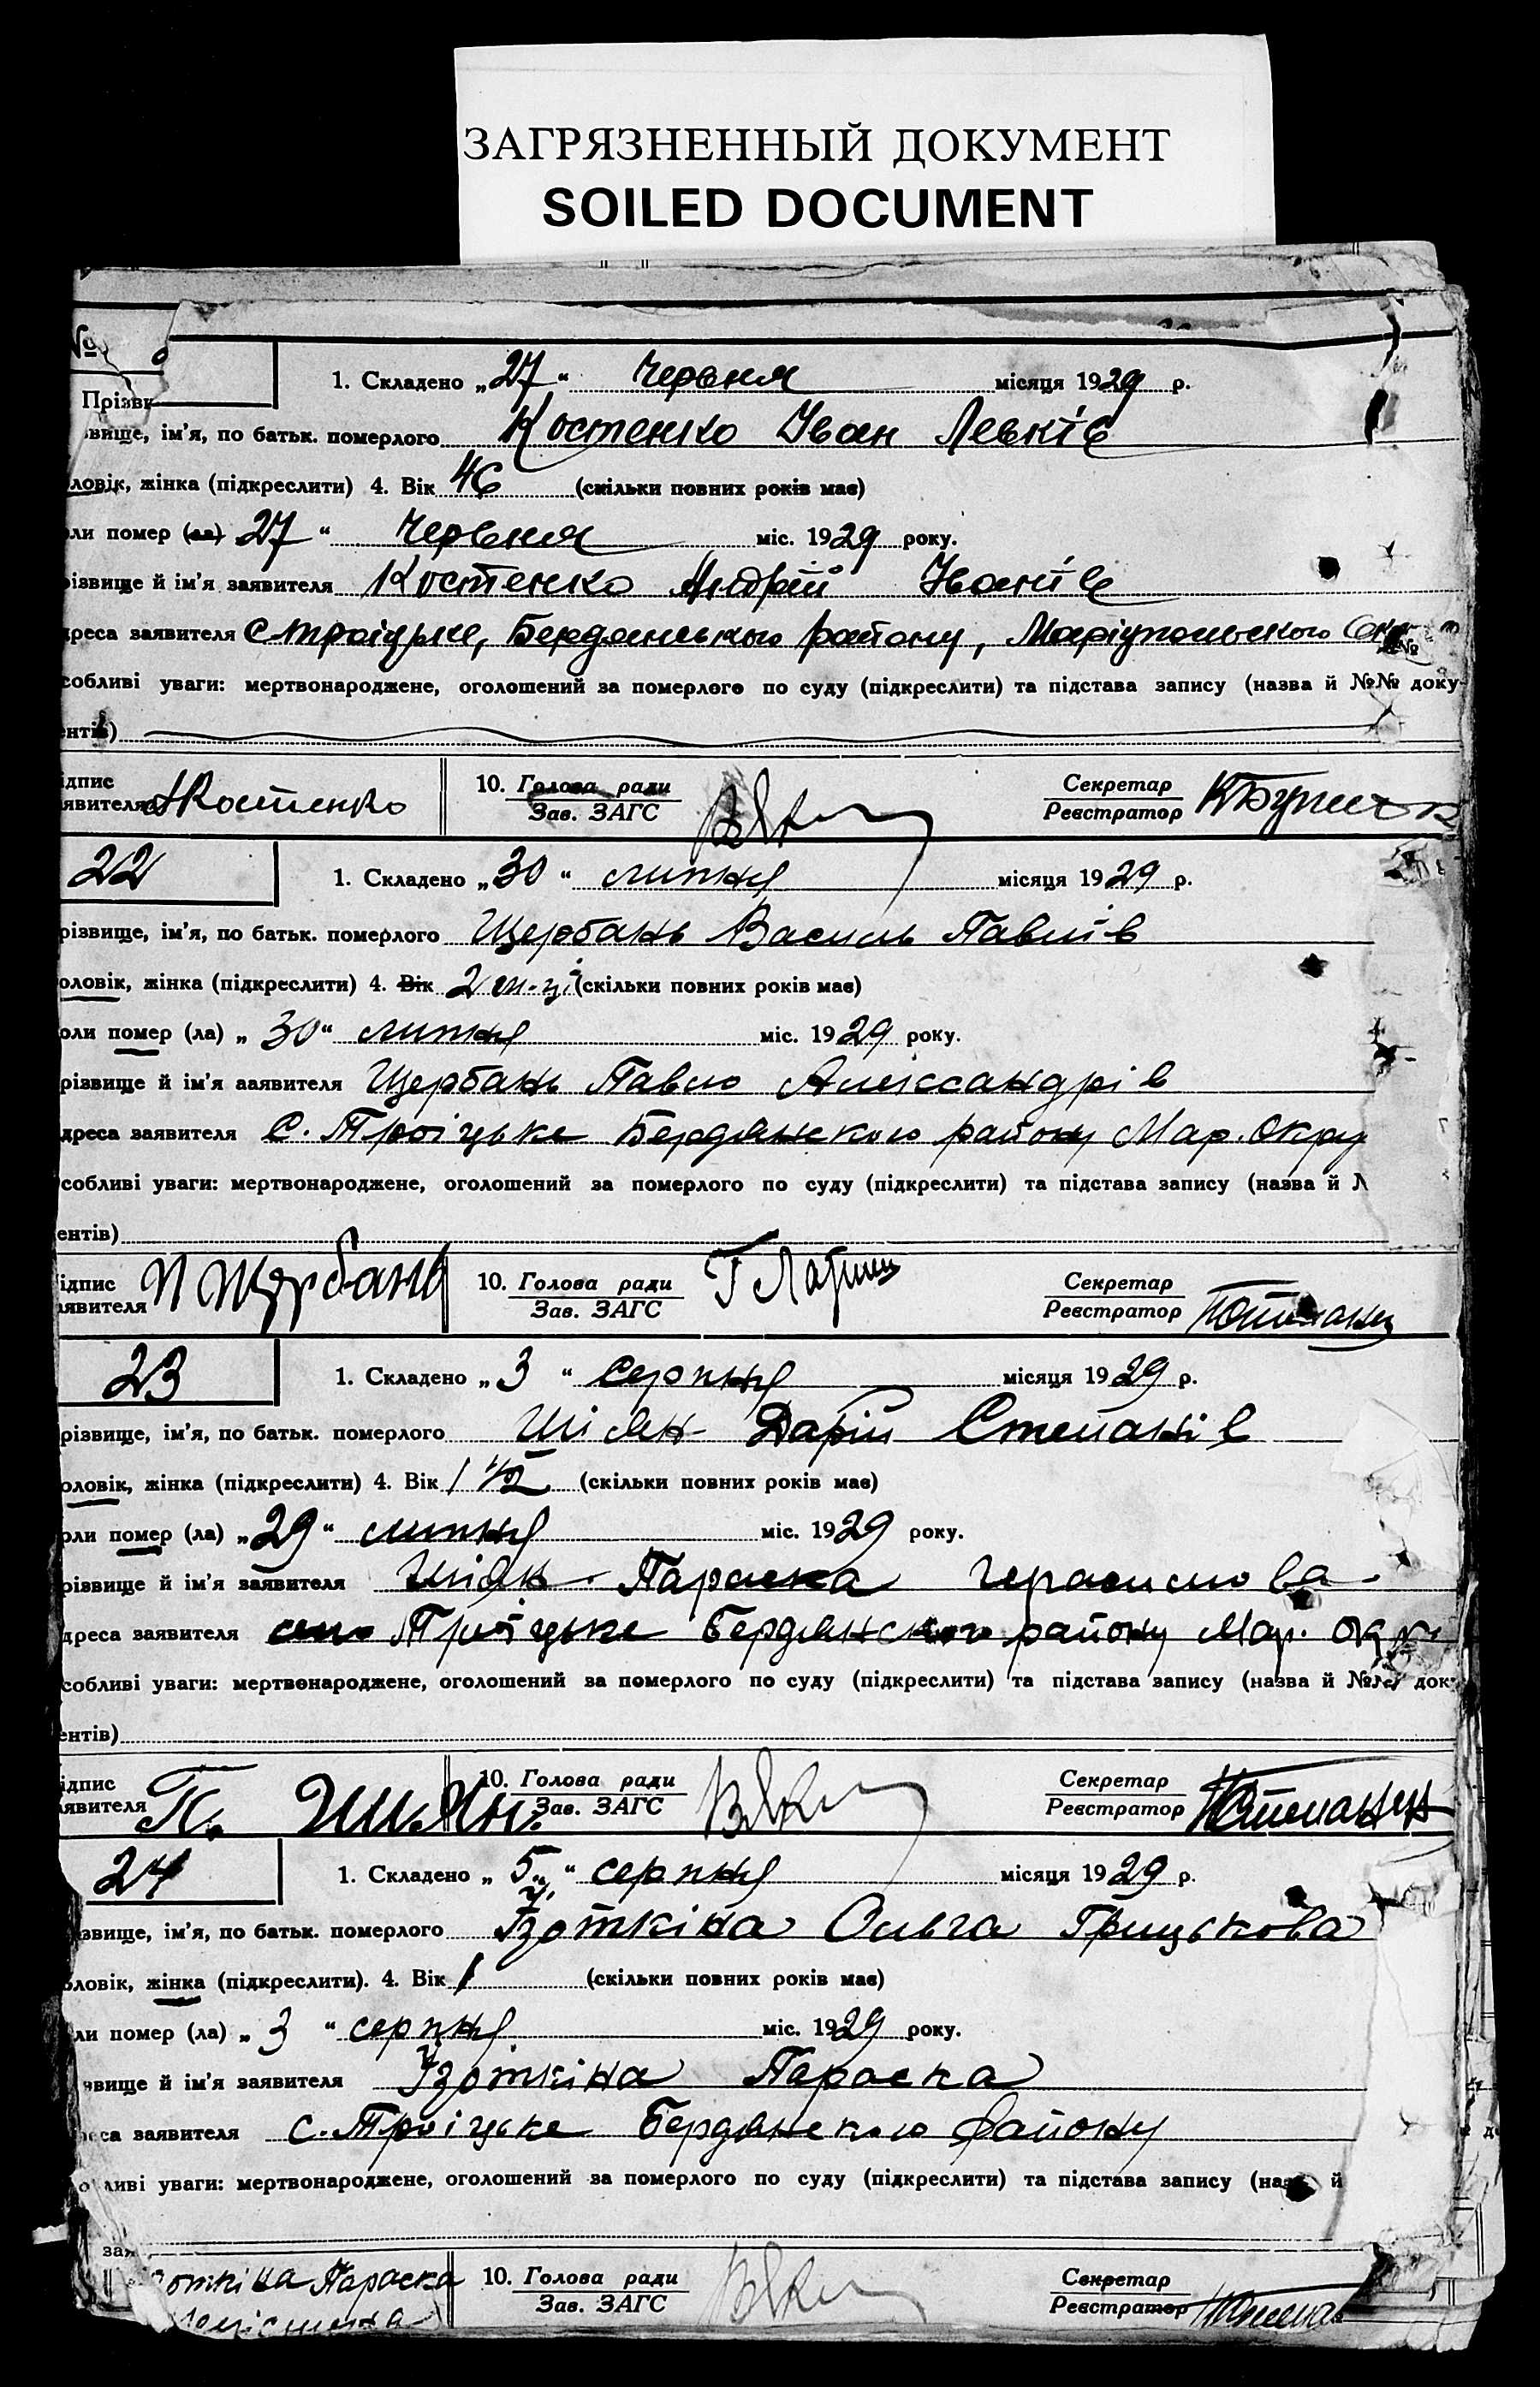 ЗАГРЯЗНЕННЫЙ ДОКУМЕНТ
SOILED DOCUMENT
№
Прізв
1. Складено „27“ червня місяця 1929 р.
звище, ім'я, по батьк. померлого Костенко Іван Левків
ловік, жінка (підкреслити) 4. Вік 46 (скільки повних років має)
ли помер (ла) 27 “ червня міс. 1929 року.
різвище й ім'я заявителя Костенко Андрій Іванів
дреса заявителя с Троіцьке, Бердянського району, Маріупольского Окр
собливі уваги: мертвонароджене, оголошений за померлого по суду (підкреслити) та підстава запису (назва й №№ доку-
ентів)
ідпис
явителя АКостенко 10. Голова ради
Зав. ЗАГС
Секретар
Реєстратор
22 1. Складено „30“ липня місяця 1929 р.
різвище, ім'я, по батьк. померлого Щербань Василь Павлів
оловік, жінка (підкреслити) 4. Вік 2 м-ці (скільки повних років має)
оли помер (ла) „ 30“ липня міс. 1929 року.
різвище й ім'я заявителя Щербань Павло Александрів
дреса заявителя с. Троіцьке Бердянского району Мар. Окру
собливі уваги: мертвонароджене, оголошений за померлого по суду (підкреслити) та підстава запису (назва й
ентів)
ідпис
явителя П Щербань 10. Голова ради
Зав. ЗАГС
Секретар
Реєстратор
23 1. Складено „3“ серпня місяця 1929 р.
різвище, ім'я, по батьк. померлого Шіян Дарій Степанів
оловік, жінка (підкреслити) 4. Вік 1 1/2 (скільки повних років має)
оли помер (ла) „29“ липня міс. 1929 року.
різвище й ім'я заявителя Шіян Параска Герасимова
дреса заявителя Троіцьке Бердянского району Мар. окр.
собливі уваги: мертвонароджене, оголошений за померлого по суду (підкреслити) та підстава запису (назва й № док
ентів)
ідпис
явителя П. Шиян. 10. Голова ради
Зав. ЗАГС
Секретар
Реєстратор
24 1. Складено „ 5 “ серпня місяця 1929 р.
звище, ім'я, по батьк. померлого Ізоткіна Ольга Грицькова
ловік, жінка (підкреслити). 4. Вік 1 (скільки повних років має)
ли помер (ла) „ 3 “ серпня міс. 1929 року.
звище й ім'я заявителя Ізоткіна Параска
реса заявителя с. Троіцьке Бердянского району
ливі уваги: мертвонароджене, оголошений за померлого по суду (підкреслити) та підстава запису (наз й
зая
зоткіна Параска 10. Голова ради
Зав. ЗАГС
Секретар
Реєстратор